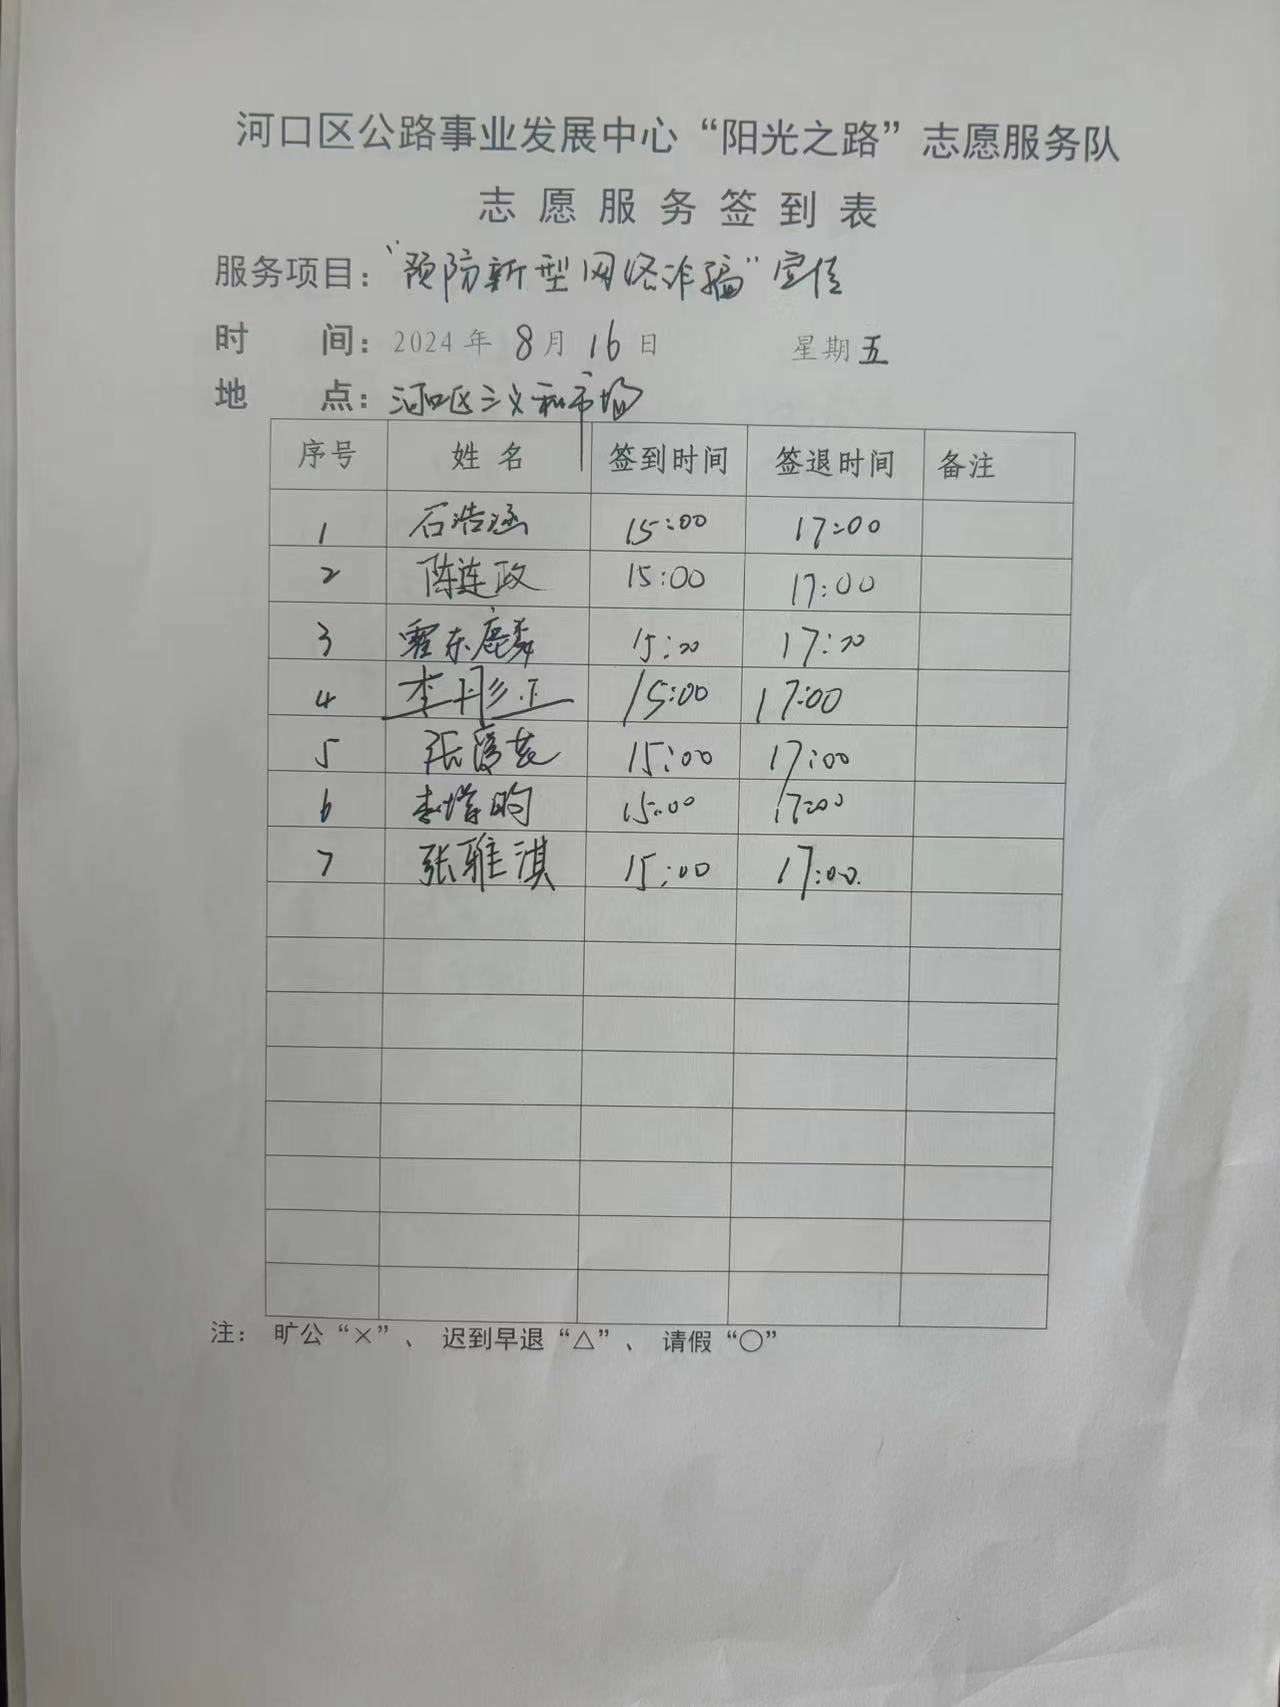 河口区公路事业发展中心“阳光之路”志愿服务队
志愿服务签到表
服务项目：“预防新型网络诈骗”宣传
时 间：2024年8月16日 星期五
地 点：河口区三义和市场
序号 姓名 签到时间 签退时间 备注
1 石浩涵 15:00 17:00
2 陈连政 15:00 17:00
3 霍东麟 15:00 17:00
4 李彤正 15:00 17:00
5 张 15:00 17:00
6 李增昀 15:00 17:00
7 张雅淇 15:00 17:00.
注： 旷公“×”、 迟到早退“△”、 请假“○”